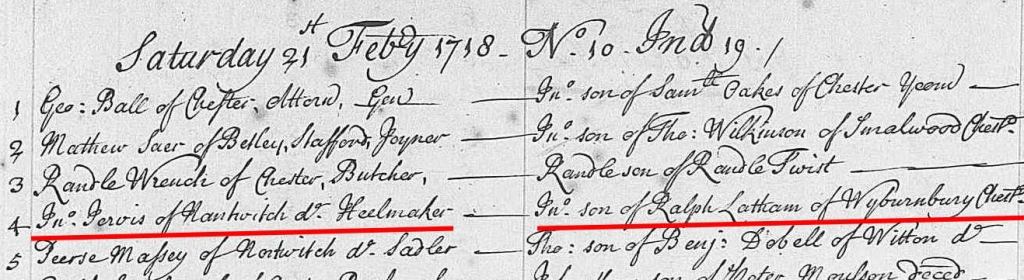 Saturday 21st Feb'y 1718 - No. 10 - Ind's 19 . /
1 Geo: Ball of Chester, Attorn, Gen — Jno. son of Sam'll Oakes of Chester Yeom —
2 Mathew Saer of Betley, Stafford, Joyner — Jno. son of Tho: Wilkinson of Smalwood Chesh.
3 Randle Wrench of Chester, Butcher, — Randle son of Randle Twist —
4 Jno. Jervis of Nantwitch do. Heelmaker — Jno. son of Ralph Latham of Wyburnbury Chesh.
5 Peerse Massey of Nortwitch do. Sadler — Tho: son of Benj: Dobell of Witton do —
son of Peter Moulson deced